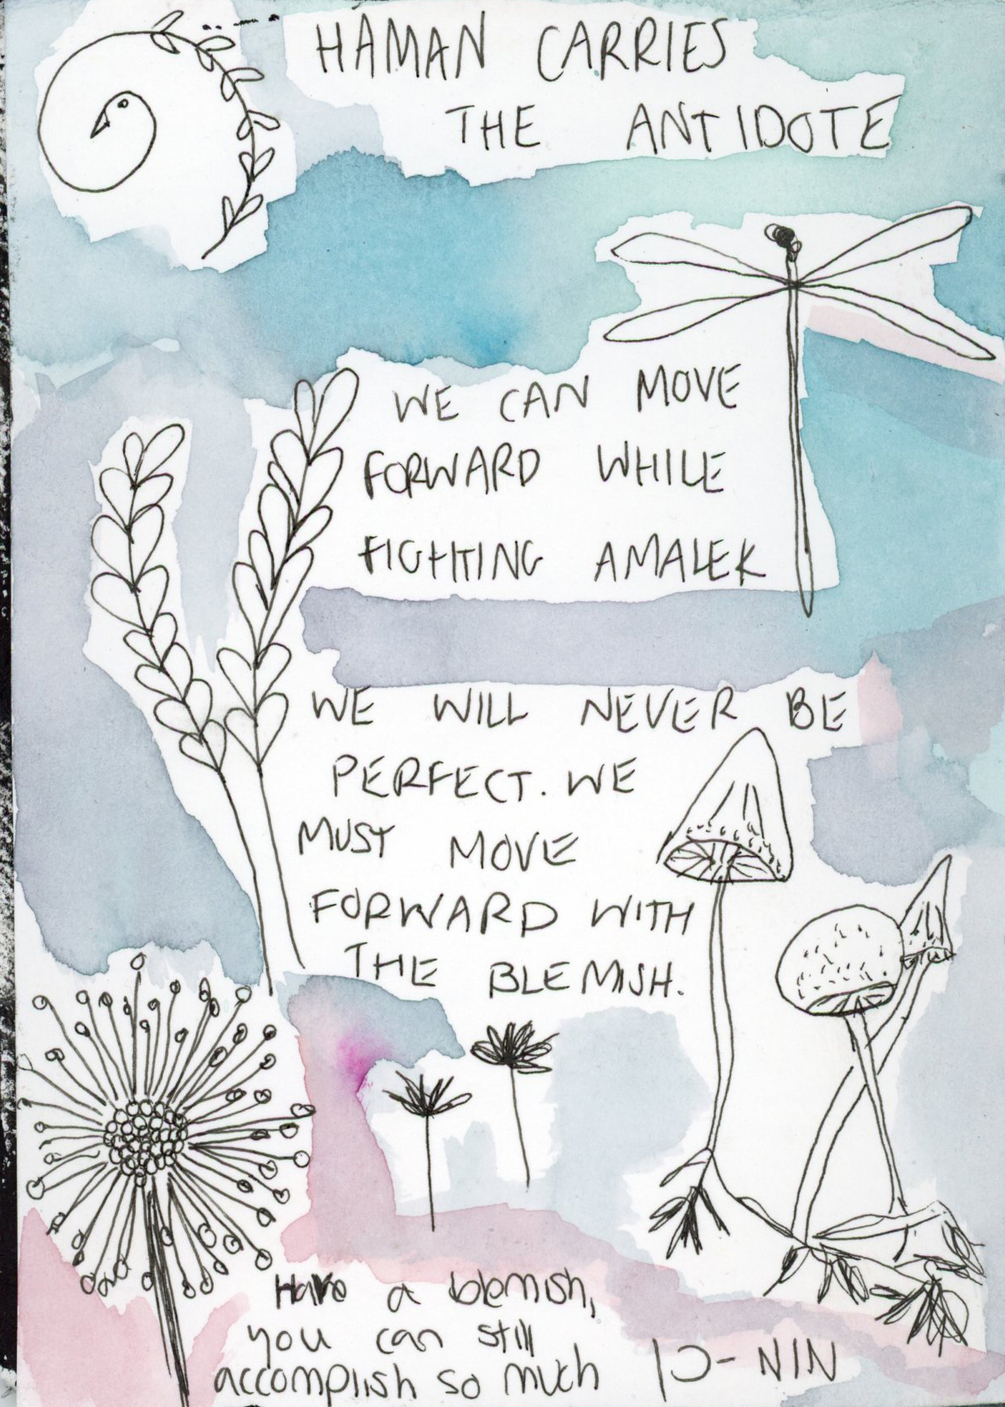 HAMAN CARRIES
THE ANTIDOTE
WE CAN MOVE
FORWARD WHILE
FIGHTING AMALEK
WE WILL NEVER BE
PERFECT. WE
MUST MOVE
FORWARD WITH
THE BLEMISH.
Have a blemish,
you can still
accomplish so much